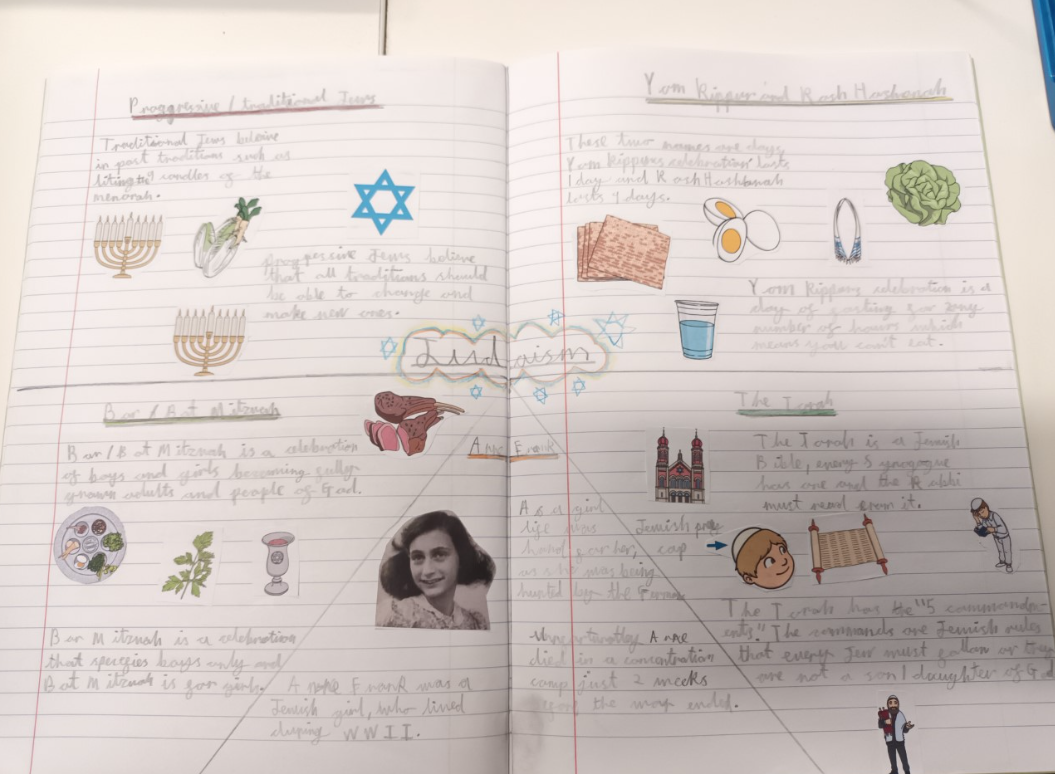 Proggresive / traditional Jews
Traditional Jews believe
in past traditions such as
candles of the
menorah.
progressive Jews believe
that all traditions should
be able to change and
make new ones.
Yom Kippur and Rosh Hashanah
These two names are days,
Yom kippurs celebration lasts
1 day and Rosh Hashbanah
lasts days.
Yom Kippurs celebration is a
day of fasting for
number of hours which
means you can't eat.
Judaism
Bar / Bat Mitzvah
Bar/Bat Mitzvah is a celebration
of boys and girls becoming fully
grown adults and people of God.
Bar Mitzvah is a celebration
that boys only and
Bat Mitzvah is for girls.
Anne Frank
Anne Frank was a
Jewish girl, who lived
during WWII.
As a girl
life was
hard for her,
as she was being
hunted by the
Unfortunatly Anne
died in a concentration
camp just 2 weeks
the war ended.
The Torah
The Torah is a Jewish
Bible, every Synagogue
has one and the Rabbi
must read from it.
Jewish
cap
The Torah has the "5 commandm-
ents". The commands are Jewish rules
that every Jew must follow or they
are not a son/daughter of God